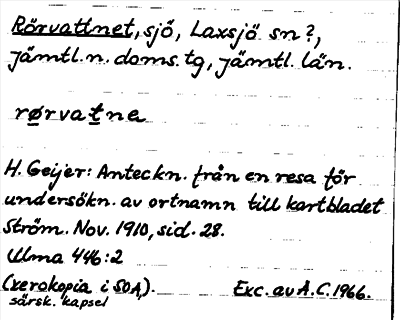 Rörvattnet, sjö, Laxsjö sn?,
Jämtl. n. doms. tg, Jämtl. län.
rørvatne
H. Geijer: Anteckn. från en resa för
undersökn. av ortnamn till kartbladet
Ström. Nov. 1910, sid. 28.
Ulma 446:2
(xerokopia i SOA,).
särsk. kapsel
Exc. av A.C. 1966.